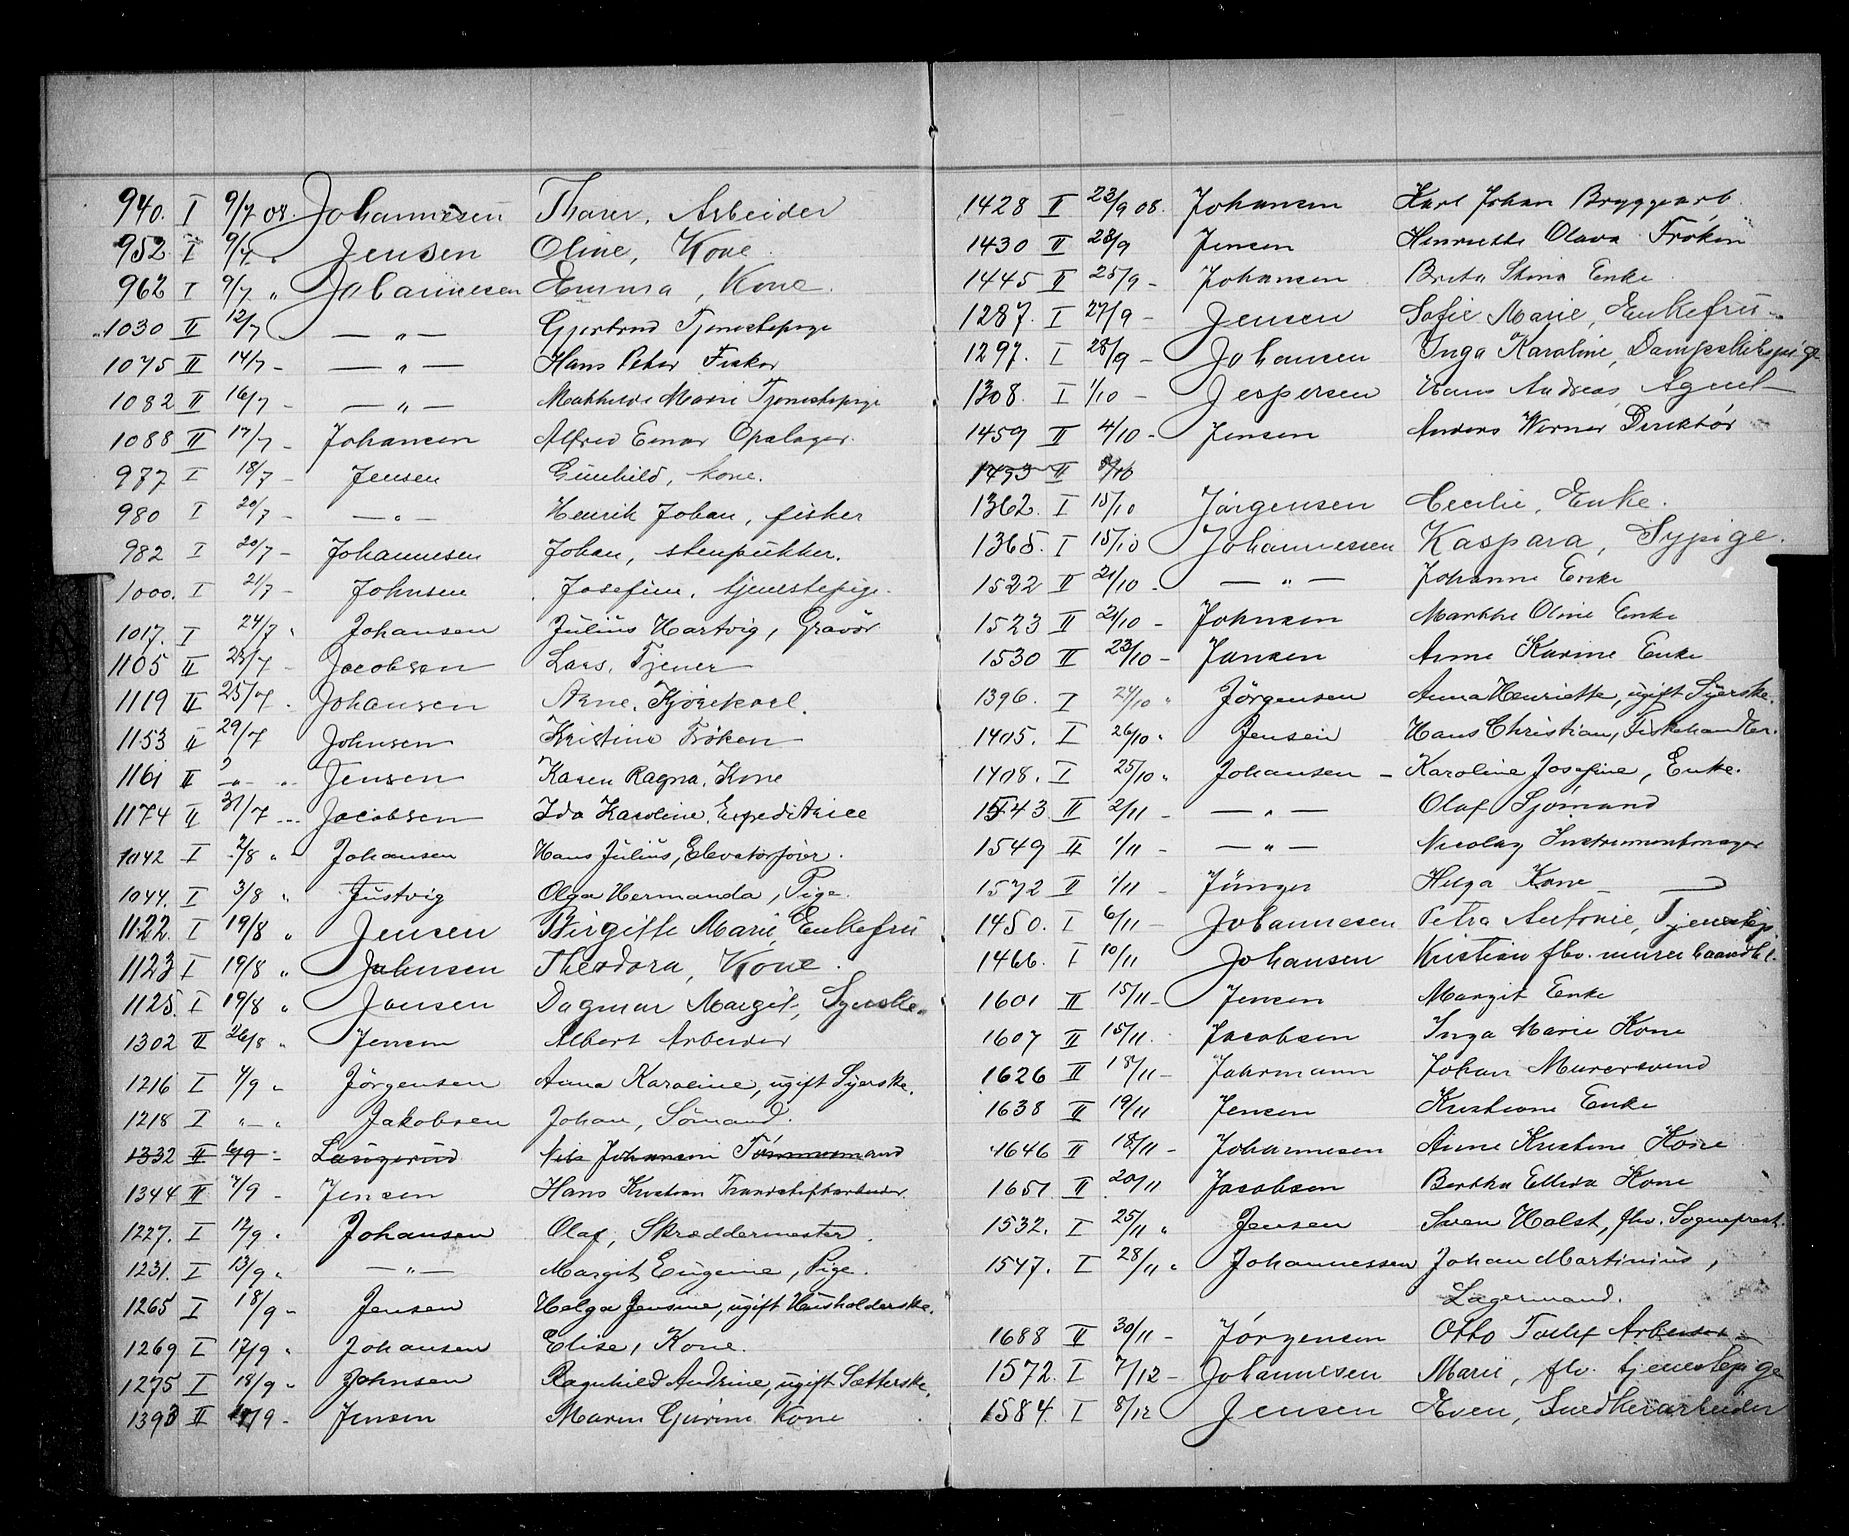 940. I 9/7 08. Johannesen Tharer, Arbeider
952. I 9/7 „ Jensen Oline, Kone.
962 I 9/7 „ Johannesen Emma, Kone.
1030 II 12/7 — „ — Gjertrud Tjenestepige
1075 II 14/7 - — „ — Hans Peter Fisker
1082 II 16/7 - — „ — Mathilde Marie Tjenestepige
1088 II 17/7 - Johansen Alfred Einar Opslager.
977 I 18/7 - Jensen Gunhild, kone.
980 I 20/7 - — „ — Henrik Johan, fisker
982 I 20/7 - Johannesen Johan, stenpukker.
1000. I 21/7 - Johnsen Josefine, tjenestepige.
1017. I 24/7 „ Johansen Julius Hartvig, Gravör
1105 II 23/7 - Jacobsen Lars, Tjener
1119 II 25/7 . Johansen Arne, Kjørekarl.
1153 II 29/7 Johnsen Kristine Frøken
1161 II - „ - „ Jensen Karen Ragna, Kone
1174 II 31/7 - Jacobsen Ida Karoline, Expeditrice
1042 I 2/8 „ Johansen Hans Julius, Elevatorfører.
1044. I 3/8 „ Justvig Olga Hermanda, Pige.
1122. I 19/8 „ Jensen Birgitte Marie, Enkefru
1123 I 19/8 „ Johnsen Theodora, Kone.
1125. I 19/8 „ Jansen Dagmar Margit, Syerske.
1302 II 26/8 „ Jensen Albert Arbeider
1216 I 4/9 „ Jörgensen Anna Karoline, ugift Syerske.
1218 I „ - „ Jakobsen Johan, Sömand.
1332 II 6/9 - Langerud Nils Johansen Tømmermand
1344 II 7/9 - Jensen Hans Kristian
1227. I 12/9 „ Johansen Olaf, Skræddermester.
1231. I 13/9 „ — „ — Margit Eugenie, Pige.
1265 I 18/9 - Jensen Helga Jensine, ugift Husholderske.
1269 I 17/9 „ Johansen Elise, Kone.
1275 I 18/9 „ Johnsen Ragnhild Andrine, ugift Sætterske.
1393 II /9 - Jensen Maren Gurine Kone
1428 II 23/9 08. Johansen Karl Johan Bryggearb.
1430 II 23/9 Jensen Henriette Olava Frøken
1445 II 25/9 - Johansen Brita Stina Enke
1287. I 27/9 - Jensen Sofie Marie, Enkefru
1297. I 28/9 - Johansen Inga Karoline, Dampskibspige
1308. I 1/10 - Jespersen Hans Andreas, Agent
1459 II 4/10 - Jensen Anders Werner Direktør
1433 II 8/10
1362. I 15/10 Jörgensen Cecilie, Enke.
1365. I 15/10 Johannessen Kaspara, Sypige.
1522 II 21/10 - — „ — Johanne Enke
1523 II 21/10 - Johnsen Marthe Oline Enke
1530 II 23/10 - Jansen Anne Karine Enke
1396. I 24/10 „ Jörgensen Anna Henriette, ugift Syerske.
1405. I 26/10 „ Jensen Hans Christian, Fiskehandler.
1408. I 25/10 „ Johansen - Karoline Josefine, Enke.
1543 II 2/11 - — „ — Olaf Sjømand
1549 II 1/11 - — „ — Nicolay Instrumentmager
1572 II 1/11 - Jünger Helga Kone
1450. I 6/11 - Johannesen Petra Antonie, Tjenestep.
1466. I 10/11 Johansen Kristian fhv. murerhaandl.
1601 II 15/11 - Jensen Margit Enke
1607 II 15/11 Jacobsen Inga Marie Kone
1626 II 18/11 - Jahrmann Johan Murersvend
1638 II 19/11 Jensen Kristiane Enke
1646 II 18/11 - Johannesen Anne Kristine Kone
1651 II 20/11 Jacobsen Bertha Ellida Kone
1532. I 25/11 „ Jensen Sven Holst, fhv. Sogneprest.
1547. I 28/11 „ Johannessen Johan Martinius,
Lagermand.
1688 II 30/11 - Jørgensen Otto Tollef Arbeider
1572. I 7/12 - Johannesen Marie, fhv. tjenestepige
1584. I 8/12 Jensen Even, Snedkerarbeider